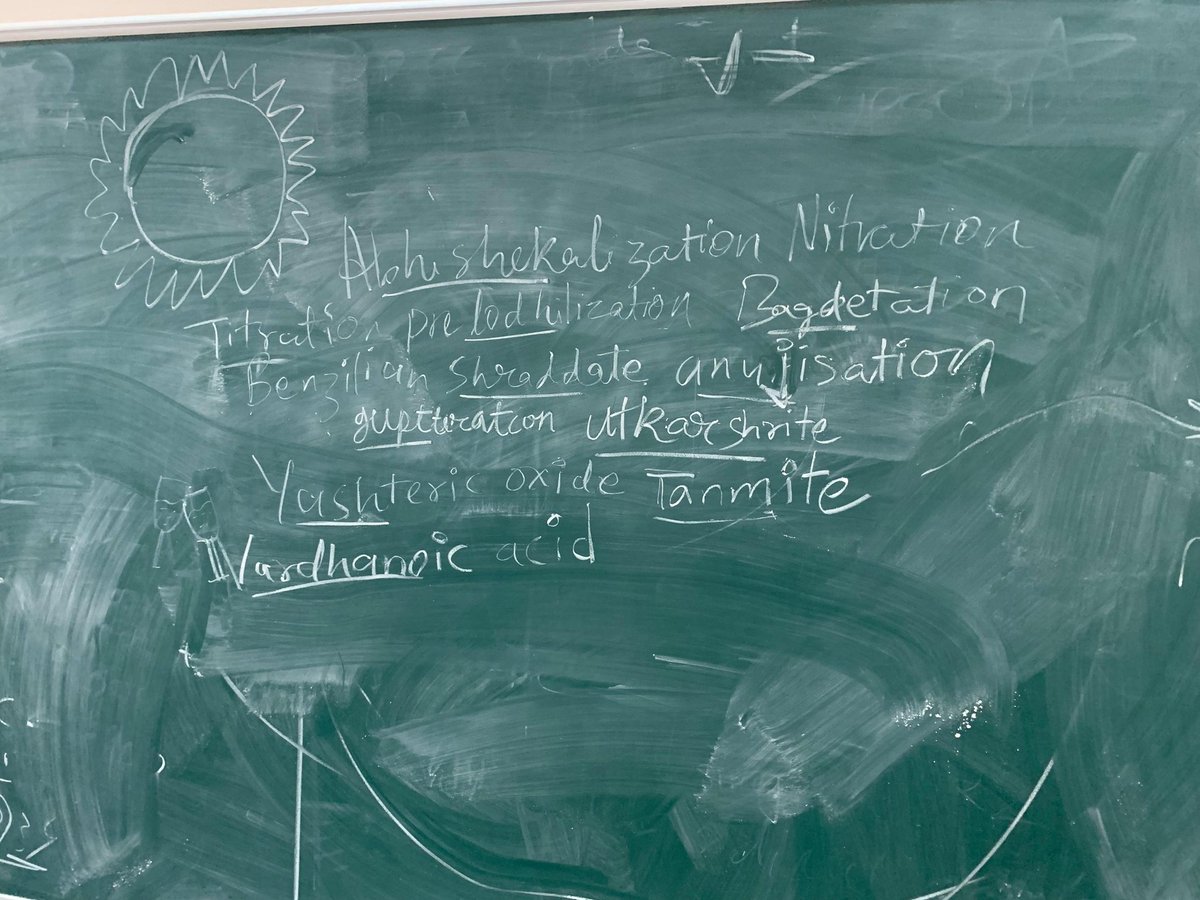 Abhishekalization Nitration
Titration prelodhilization Bagdetation
Benzilian shraddate anujisation
guptteration utkarshrite
Yashteric oxide Tanmite
Vardhanoic acid